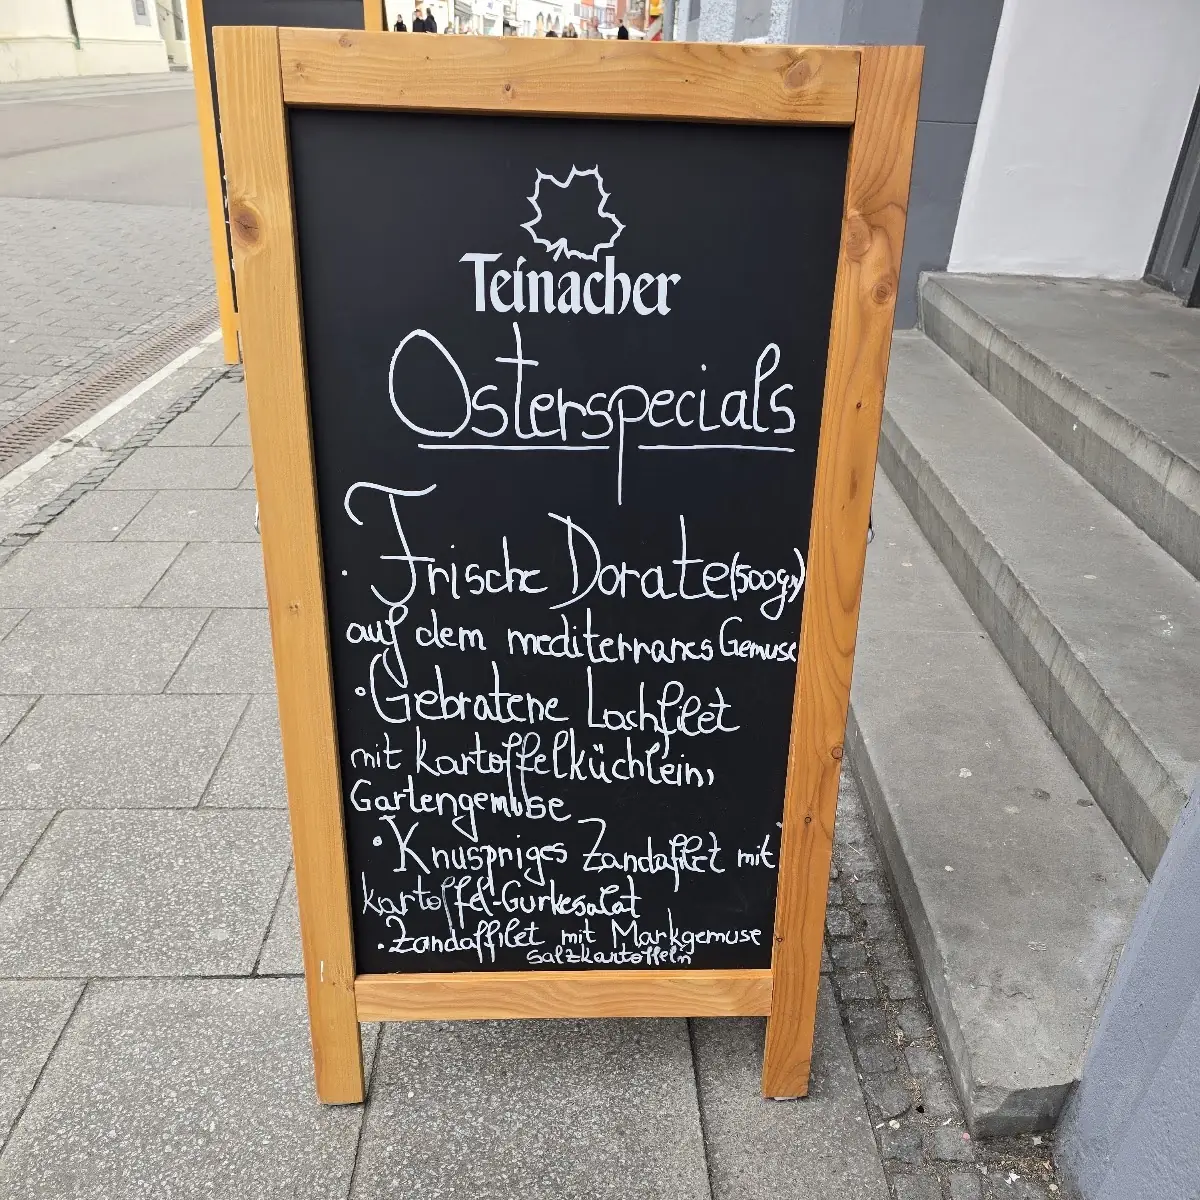 Teinacher
Osterspecials
· Frische Dorate (500gr)
auf dem mediterranes Gemuse
· Gebratene Lachfilet
mit Kartoffelküchlein,
Gartengemüse
· Knuspriges Zandafilet mit
Kartoffel-Gurkesalat
· Zandaffilet mit Markgemuse
Salzkartoffeln